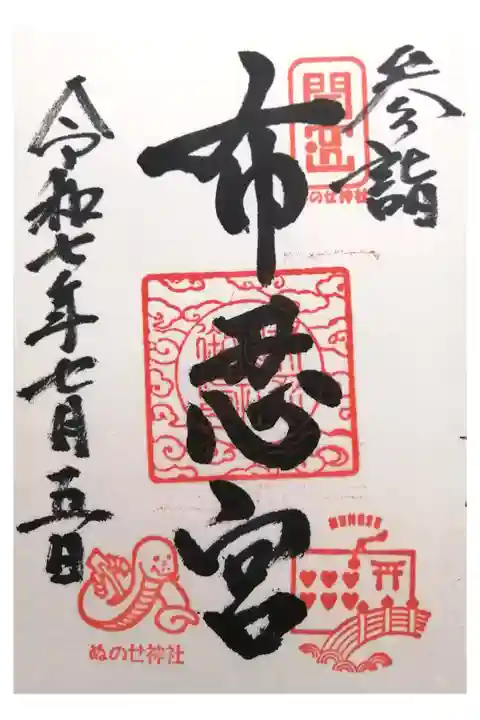 参詣
開運
の世神社
布忍宮
令和七年七月五日
NUNOSE
ぬのせ神社